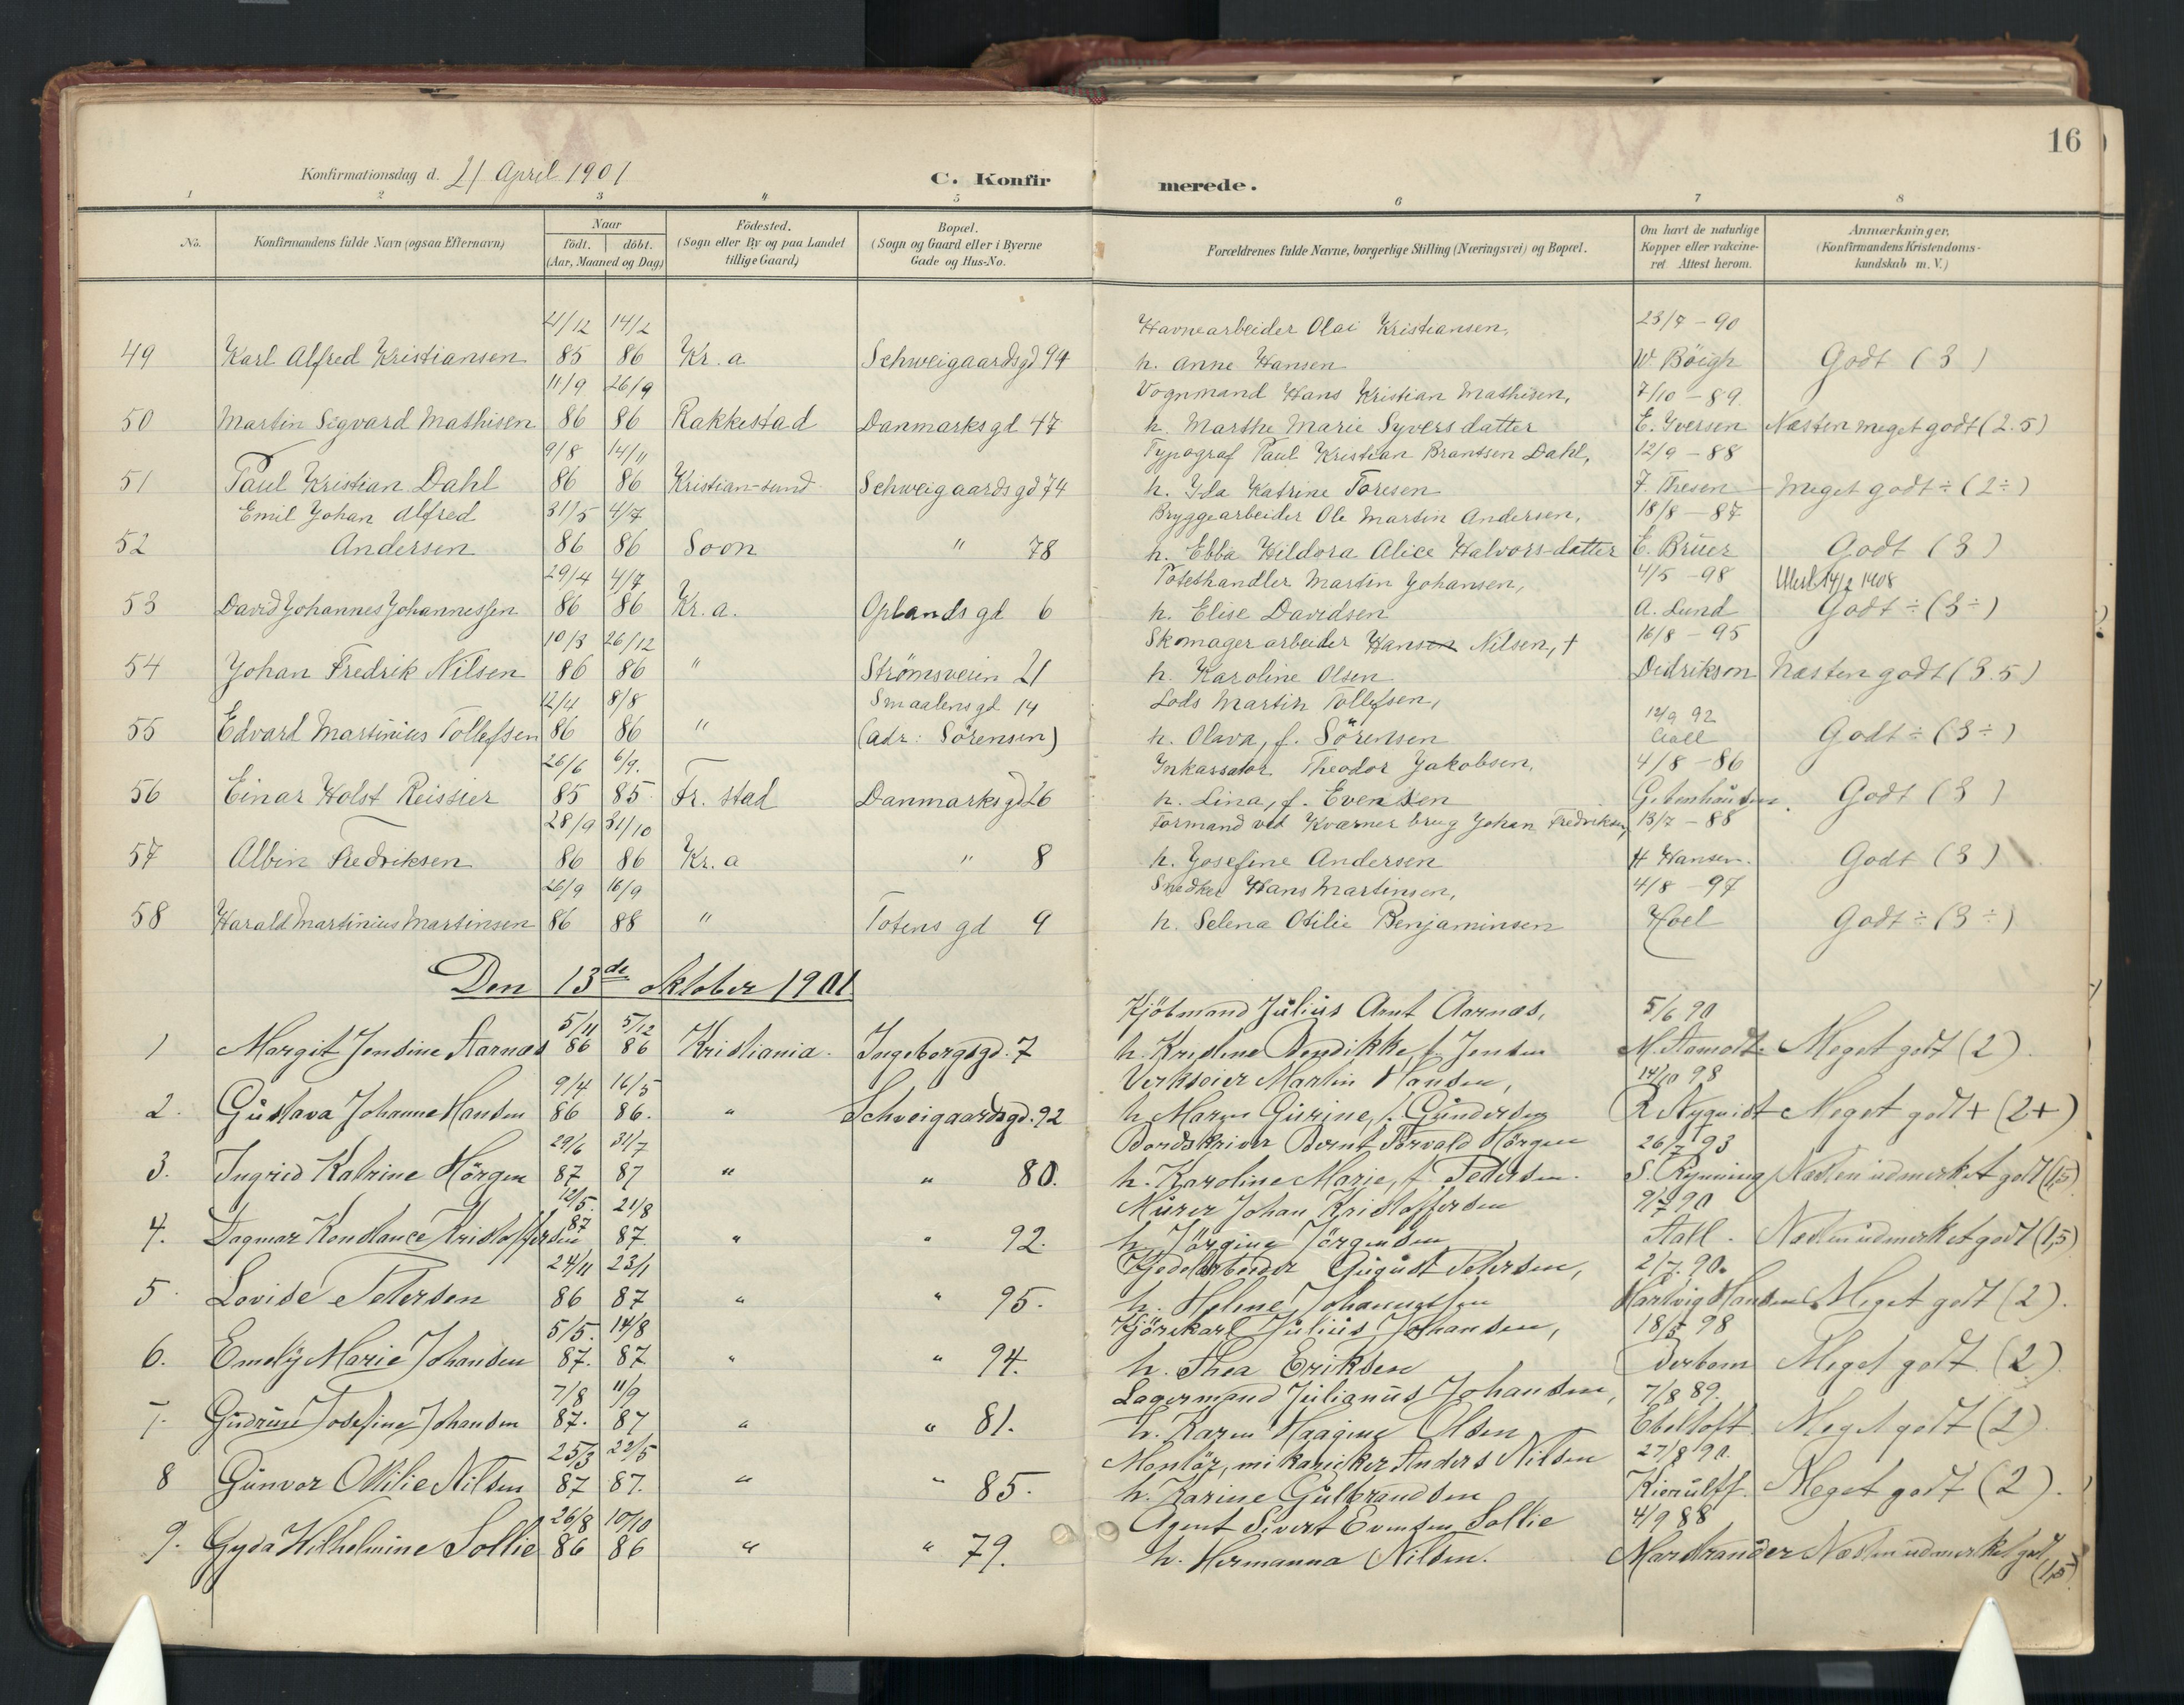 16
Konfirmationsdag d. 21 April 1901
C. Konfirmerede.
1 2 3 4 5 6 7 8
No.
Konfirmandens fulde Navn (ogsaa Efternavn)
Naar
födt. döbt.
(Aar, Maaned og Dag)
Födested.
(Sogn eller By og paa Landet
tillige Gaard)
Bopæl.
(Sogn og Gaard eller i Byerne
Gade og Hus-No.
Forældrenes fulde Navne, borgerlige Stilling (Næringsvei) og Bopæl.
Om havt de naturlige
Kopper eller vakcine-
ret Attest herom.
Anmærkninger,
(Konfirmandens Kristendoms-
kundskab m. V.)
21/12 14/2 Havnearbeider Olai Kristiansen, 23/7 - 90
49 Karl Alfred Kristiansen 85 86 Kr.a Schweigaardsgd 94 h. Anne Hansen W. Böigh Godt (3)
11/9 26/9 Vognmand Hans Kristian Mathisen, 7/10 - 89
50 Martin Segvard Mathisen 86 86 Rakkestad Danmarksgd 47 h. Marthe Marie Syversdatter E. Yversen Næsten meget godt (2.5)
9/8 14/11 Typograf Paul Kristian Brantsen Dahl, 12/9 - 88
51 Paul Kristian Dahl 86 86 Kristian-sund Schweigaardsgd 74 h. Ida Katrine Toresen F. Thesen Meget godt ÷ (2÷)
Emil Johan Alfred 31/5 4/7 Bryggearbeider Ole Martin Andersen, 18/8 - 87
52 Andersen 86 86 Soon " 78 h. Ebba Hildora Alice Halvors-datter E. Bruer Godt (3)
29/4 4/7 Potethandler Martin Johansen, 4/5 - 98 14/2 1908
53 David Johannes Johannessen 86 86 Kr.a. Oplandsgd 6 h. Elise Davidsen A. Lund Godt ÷ (3÷)
10/3 26/12 Skomagerarbeider Hansen Nilsen, † 16/8 - 95
54 Johan Fredrik Nilsen 86 86 " Strömsveien 21 h. Karoline Olsen Dedrikson Næsten godt (3.5)
12/4 8/8 Smaalensgd 14 Lods Martin Tollefsen, 12/9 92
55 Edvard Martinius Tollefsen 86 86 " (adr: Sörensen) h. Olava, f. Sörensen Aall Godt ÷ (3÷)
26/6 6/9. Inkassator Theodor Jakobsen, 4/8 - 86
56 Einar Holst Reissier 85 85 Fr.stad Danmarksgd 26 h. Lina, f. Evensen Godt (3)
28/9 31/10 Formand ved Kværner brug Johan Fredriksen, 13/7 - 88
57 Albin Fredriksen 86 86 Kr.a " 8 h. Josefine Andersen H Hansen. Godt (3)
26/9 16/9 Snedker Hans Martinsen, 4/8 - 97
58 Harald Martinius Martinsen 86 88 " Totensgd 9 h. Selena Otilie Benjaminsen Hoel Godt ÷ (3÷)
Den 13de oktober 1901
5/11 5/12 Kjöbmand Julius Arnt Aarnæs, 5/6 90
1 Margit Jensine Aarnæs 86 86 Kristiania. Ingeborgsgd. 7 h. Kristine Bendikke f. Jensen M. Aamodt Meget godt (2).
9/4 16/5 Verkseier Martin Hansen, 14/10 98
2. Gustava Johanne Hansen 86 86. " Schweigaardsgd. 92 h. Maren Gurine, f. Gundersen R Nyquist Meget godt + (2+)
29/6 31/7 Bordskriver Bernt Torvald Hörgen 26/7 93
3. Ingrid Katrine Hörgen 87 87 " " 80. h. Karoline Marie, f. Pedersen. S. Rynning Næsten udmerket godt (1,5)
12/5. 21/8 Murer Johan Kristoffersen 9/7 90
4. Dagmar Konstance Kristoffersen 87 87 " " 92. h. Jörgine Jörgensen Aall. Næsten udmerket godt (1,5)
24/11 23/1 Kjedelarbeider August Petersen, 2/7. 90.
5. Lovise Petersen 86 87 " " 95. h. Helene Johannessen Hartvig Hansen Meget godt (2).
5/5. 14/8 Kjörekarl Julius Johansen, 18/5 98
6. Emely Marie Johansen 87. 87 " " 94. h. Thea Eriksen Derbom Meget godt (2).
7/8 11/9 Lagermand Julianus Johansen, 7/8 89.
7. Gudrun Josefine Johansen 87. 87 " " 81. h. Karen Haagine Olsen Ebeltoft Meget godt (2).
25/3 22/5 Montör, mekaniker Anders Nilsen 27/8 90.
8 Gunvor Ottilie Nilsen 87 87. " " 85. h. Karine Gulbrandsen Kierulff. Meget godt (2).
26/8 10/10 Agent Sivert Evensen Sollie 4/9 88
9. Gyda Wilhelmine Sollie 86 86 " " 79. h. Hermanna Nilsen. Marstrander Næsten udmerket godt
(1,5)